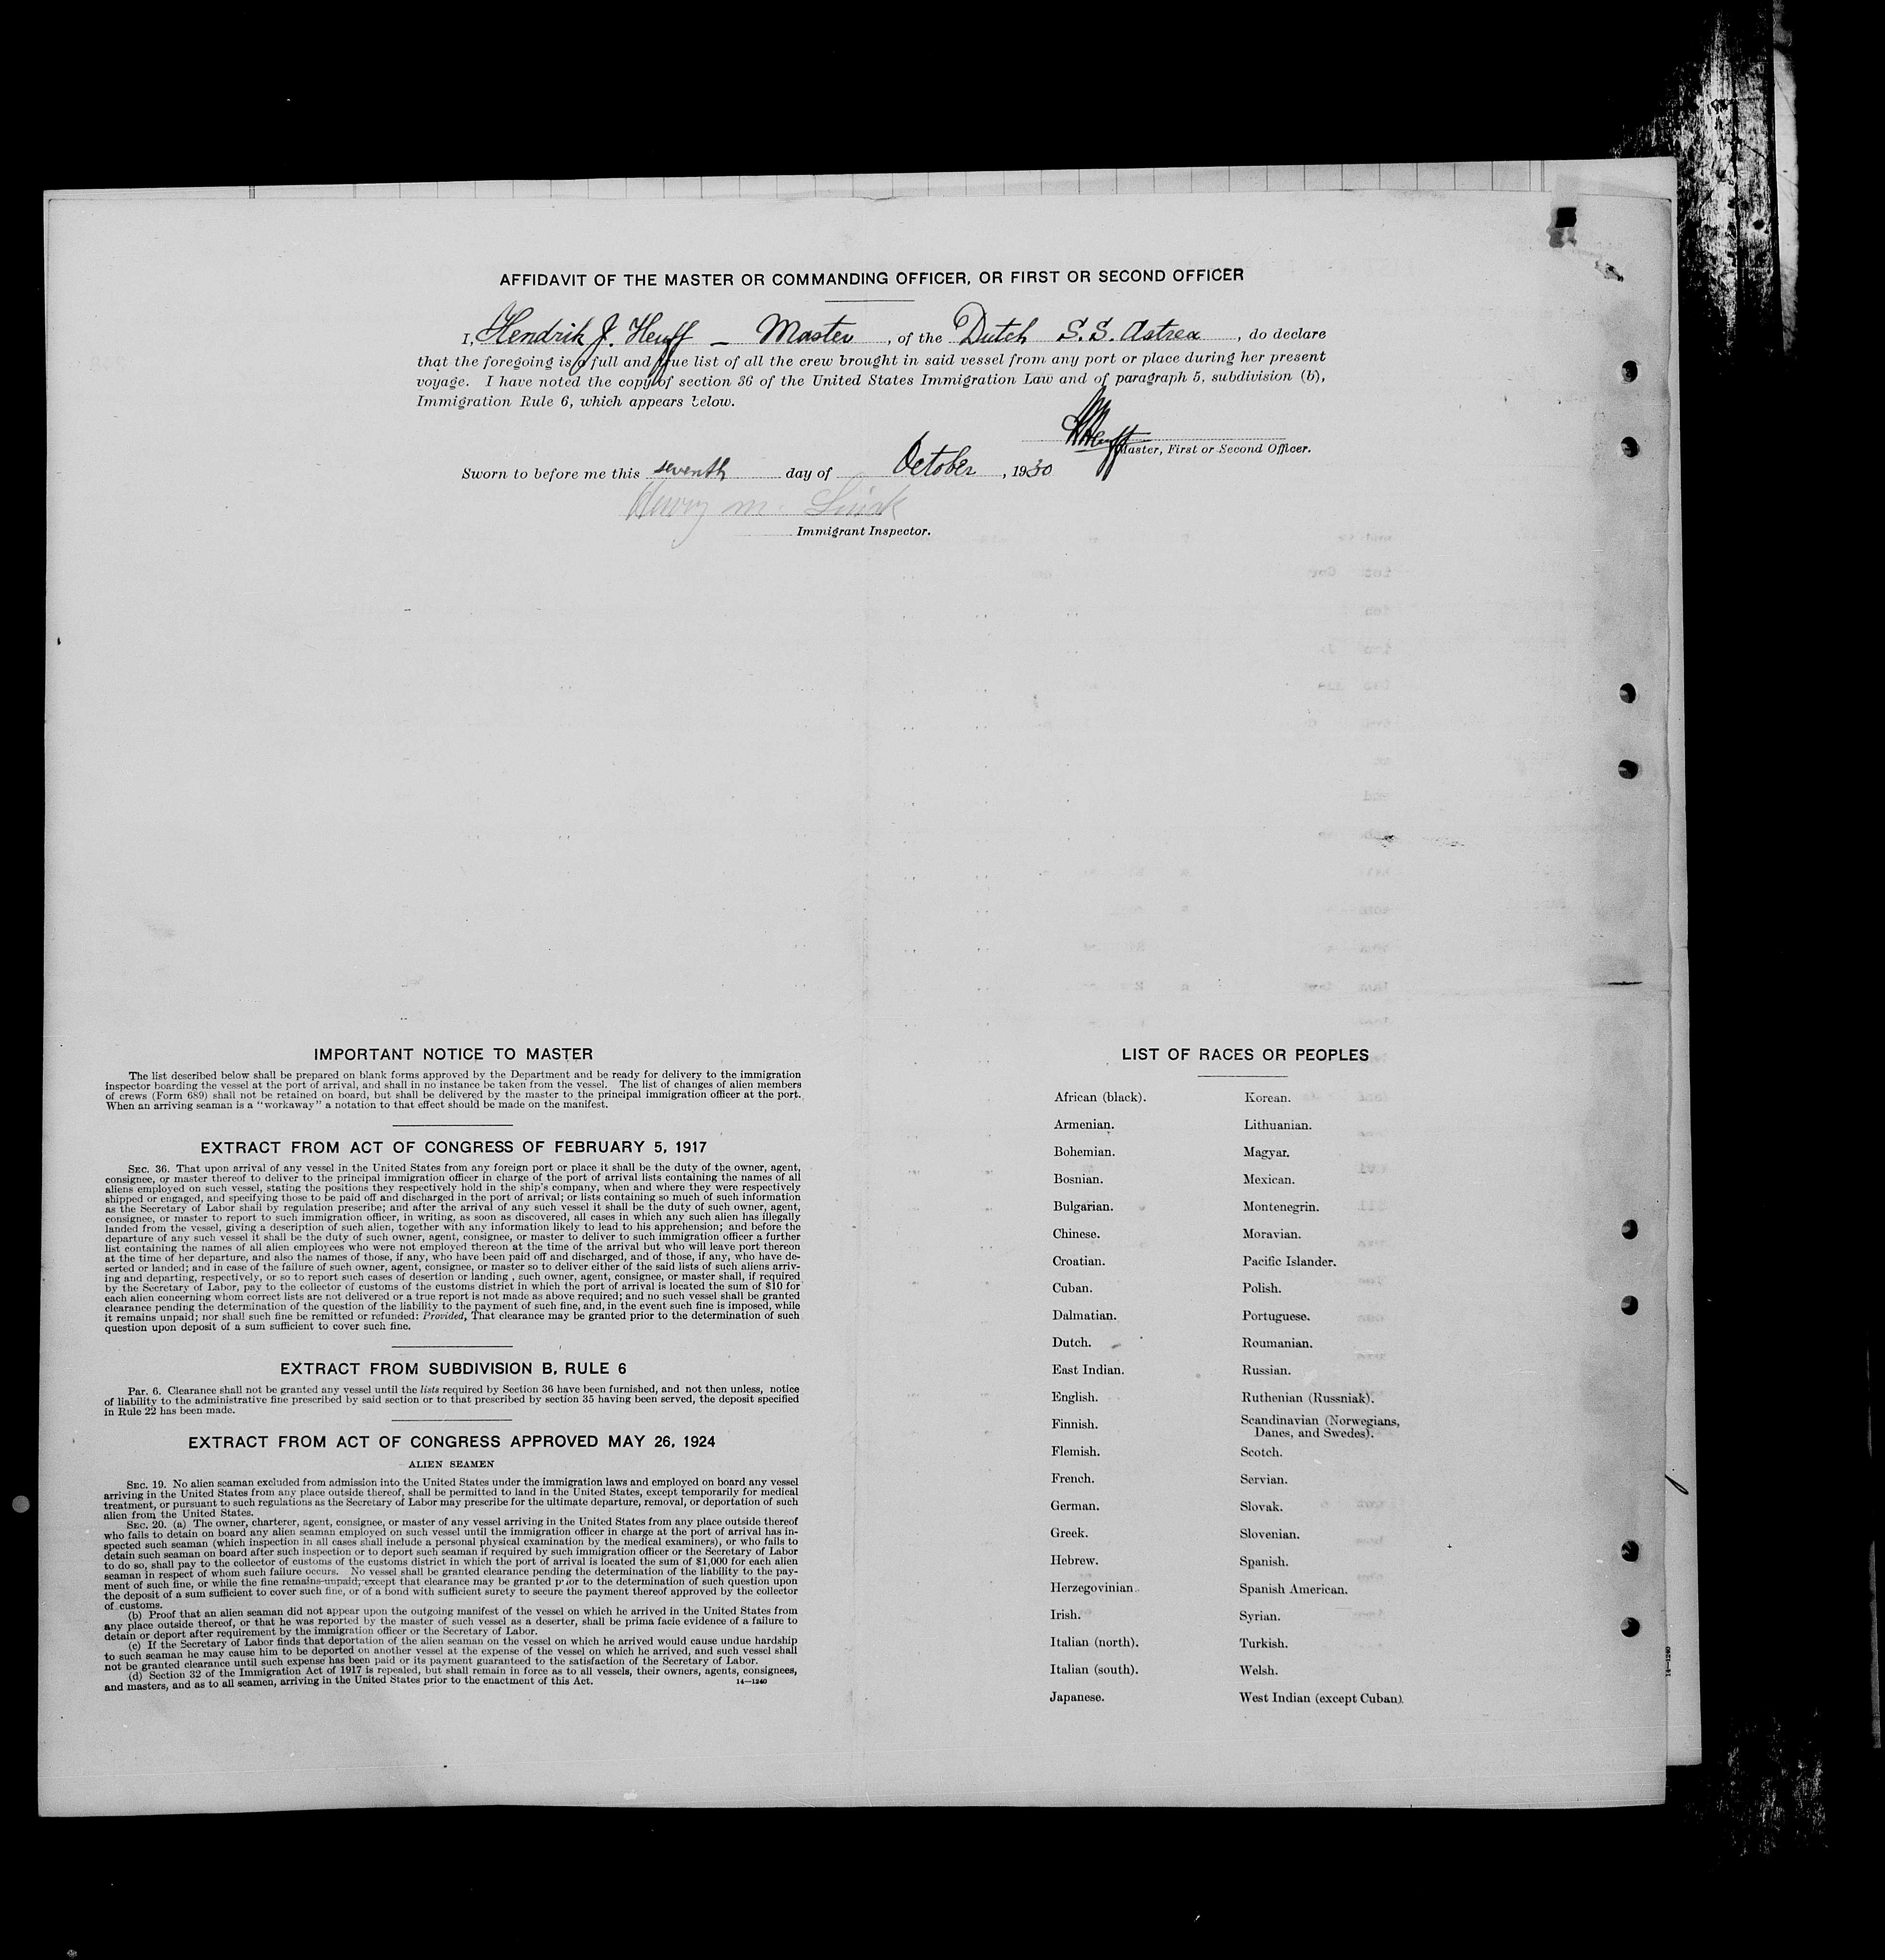 AFFIDAVIT OF THE MASTER OR COMMANDING OFFICER, OR FIRST OR SECOND OFFICER
I, Hendrik J. Heuff – Master, of the Dutch S.S. Astrea, do declare
that the foregoing is a full and true list of all the crew brought in said vessel from any port or place during her present
voyage. I have noted the copy of section 36 of the United States Immigration Law and of paragraph 5, subdivision (b),
Immigration Rule 6, which appears below.
Master, First or Second Officer.
Sworn to before me this seventh day of October, 1930
Henry M.
Immigrant Inspector.
IMPORTANT NOTICE TO MASTER
The list described below shall be prepared on blank forms approved by the Department and be ready for delivery to the immigration
inspector boarding the vessel at the port of arrival, and shall in no instance be taken from the vessel. The list of changes of alien members
of crews (Form 689) shall not be retained on board, but shall be delivered by the master to the principal immigration officer at the port.
When an arriving seaman is a "workaway" a notation to that effect should be made on the manifest.
EXTRACT FROM ACT OF CONGRESS OF FEBRUARY 5, 1917
SEC. 36. That upon arrival of any vessel in the United States from any foreign port or place it shall be the duty of the owner, agent,
consignee, or master thereof to deliver to the principal immigration officer in charge of the port of arrival lists containing the names of all
aliens employed on such vessel, stating the positions they respectively hold in the ship's company, when and where they were respectively
shipped or engaged, and specifying those to be paid off and discharged in the port of arrival; or lists containing so much of such information
as the Secretary of Labor shall by regulation prescribe; and after the arrival of any such vessel it shall be the duty of such owner, agent,
consignee, or master to report to such immigration officer, in writing, as soon as discovered, all cases in which any such alien has illegally
landed from the vessel, giving a description of such alien, together with any information likely to lead to his apprehension; and before the
departure of any such vessel it shall be the duty of such owner, agent, consignee, or master to deliver to such immigration officer a further
list containing the names of all alien employees who were not employed thereon at the time of the arrival but who will leave port thereon
at the time of her departure, and also the names of those, if any, who have been paid off and discharged, and of those, if any, who have de-
serted or landed; and in case of the failure of such owner, agent, consignee, or master so to deliver either of the said lists of such aliens arriv-
ing and departing, respectively, or so to report such cases of desertion or landing, such owner, agent, consignee, or master shall, if required
by the Secretary of Labor, pay to the collector of customs of the customs district in which the port of arrival is located the sum of $10 for
each alien concerning whom correct lists are not delivered or a true report is not made as above required; and no such vessel shall be granted
clearance pending the determination of the question of the liability to the payment of such fine, and, in the event such fine is imposed, while
it remains unpaid; nor shall such fine be remitted or refunded: Provided, That clearance may be granted prior to the determination of such
question upon deposit of a sum sufficient to cover such fine.
EXTRACT FROM SUBDIVISION B, RULE 6
Par. 6. Clearance shall not be granted any vessel until the lists required by Section 36 have been furnished, and not then unless, notice
of liability to the administrative fine prescribed by said section or to that prescribed by section 35 having been served, the deposit specified
in Rule 22 has been made.
EXTRACT FROM ACT OF CONGRESS APPROVED MAY 26, 1924
ALIEN SEAMEN
SEC. 19. No alien seaman excluded from admission into the United States under the immigration laws and employed on board any vessel
arriving in the United States from any place outside thereof, shall be permitted to land in the United States, except temporarily for medical
treatment, or pursuant to such regulations as the Secretary of Labor may prescribe for the ultimate departure, removal, or deportation of such
alien from the United States.
SEC. 20. (a) The owner, charterer, agent, consignee, or master of any vessel arriving in the United States from any place outside thereof
who fails to detain on board any alien seaman employed on such vessel until the immigration officer in charge at the port of arrival has in-
spected such seaman (which inspection in all cases shall include a personal physical examination by the medical examiners), or who fails to
detain such seaman on board after such inspection or to deport such seaman if required by such immigration officer or the Secretary of Labor
to do so, shall pay to the collector of customs of the customs district in which the port of arrival is located the sum of $1,000 for each alien
seaman in respect of whom such failure occurs. No vessel shall be granted clearance pending the determination of the liability to the pay-
ment of such fine, or while the fine remains unpaid, except that clearance may be granted prior to the determination of such question upon
the deposit of a sum sufficient to cover such fine, or of a bond with sufficient surety to secure the payment thereof approved by the collector
of customs.
(b) Proof that an alien seaman did not appear upon the outgoing manifest of the vessel on which he arrived in the United States from
any place outside thereof, or that he was reported by the master of such vessel as a deserter, shall be prima facie evidence of a failure to
detain or deport after requirement by the immigration officer or the Secretary of Labor.
(c) If the Secretary of Labor finds that deportation of the alien seaman on the vessel on which he arrived would cause undue hardship
to such seaman he may cause him to be deported on another vessel at the expense of the vessel on which he arrived, and such vessel shall
not be granted clearance until such expense has been paid or its payment guaranteed to the satisfaction of the Secretary of Labor.
(d) Section 32 of the Immigration Act of 1917 is repealed, but shall remain in force as to all vessels, their owners, agents, consignees,
and masters, and as to all seamen, arriving in the United States prior to the enactment of this Act.
14—1240
LIST OF RACES OR PEOPLES
African (black).
Armenian.
Bohemian.
Bosnian.
Bulgarian.
Chinese.
Croatian.
Cuban.
Dalmatian.
Dutch.
East Indian.
English.
Finnish.
Flemish.
French.
German.
Greek.
Hebrew.
Herzegovinian.
Irish.
Italian (north).
Italian (south).
Japanese.
Korean.
Lithuanian.
Magyar.
Mexican.
Montenegrin.
Moravian.
Pacific Islander.
Polish.
Portuguese.
Roumanian.
Russian.
Ruthenian (Russniak).
Scandinavian (Norwegians,
Danes, and Swedes).
Scotch.
Servian.
Slovak.
Slovenian.
Spanish.
Spanish American.
Syrian.
Turkish.
Welsh.
West Indian (except Cuban).
14—1240